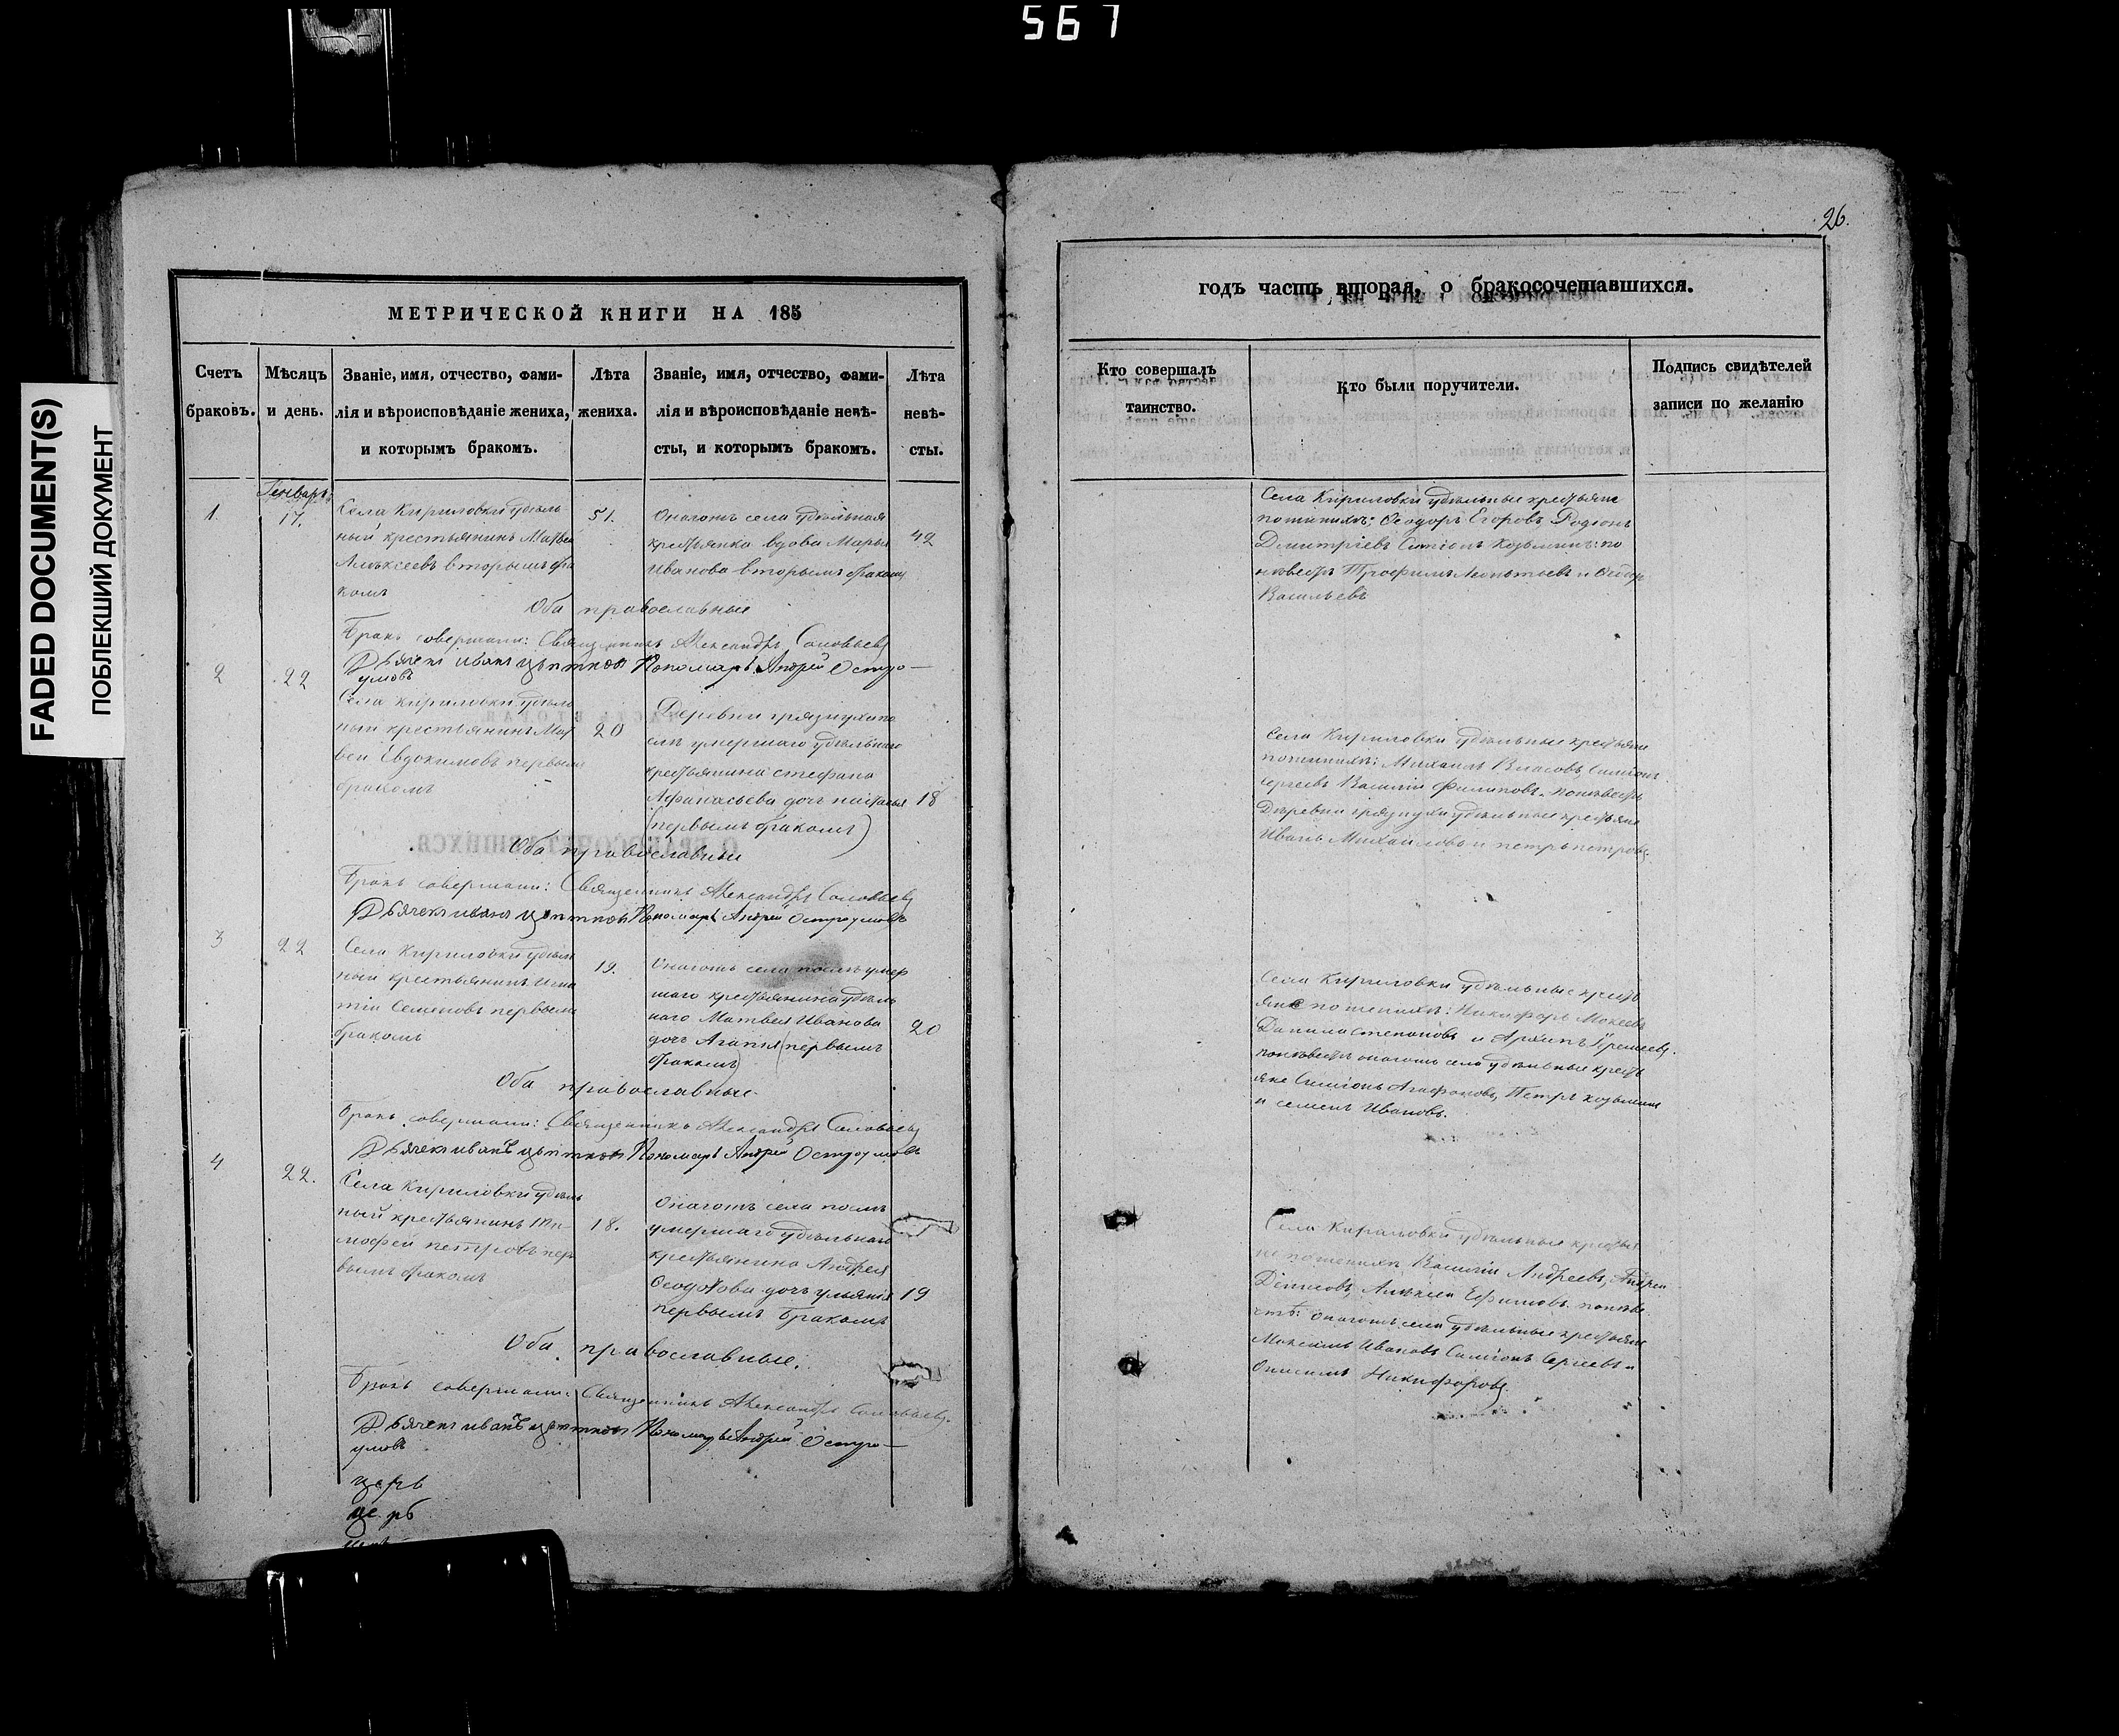 567
FADED DOCUMENT(S)
ПОБЛЕКШИЙ ДОКУМЕНТ
МЕТРИЧЕСКОЙ КНИГИ НА 185
Счетъ браковъ.
Мѣсяцъ и день.
Званіе, имя, отчество, фами-
лія и вѣроисповѣданіе жениха,
и которымъ бракомъ.
Лѣта
жениха.
Званіе, имя, отчество, фами-
лія и вѣроисповѣданіе невѣ-
сты, и которымъ бракомъ.
Лѣта
невѣ-
сты.
Генварь
1.
17.
Села Кириловки удѣль
ный крестьянинъ Матвей
Алексеевъ вторымъ бра
комъ
51.
Онагожъ села удѣльная
крестьянка вдова Марья
Иванова вторымъ бракомъ
42
Оба православные
Бракъ совершали: Священникъ Александръ Соловьевъ
Дьячекъ Иванъ Цвѣтковъ Пономарь Андрей Остро—
умовъ
2
22
Села Кириловки удѣль
ный крестьянинъ Мат
вей Евдокимовъ первымъ
бракомъ
20
Деревни Грязнухи по
слѣ умершаго удѣльнаго
крестьянина Стефана
Афанасьева дочь Настасья
(первымъ бракомъ)
18
Оба православные
Бракъ совершали: Священникъ Александръ Соловьевъ
Дьячекъ Иванъ Цвѣтковъ Пономарь Андрей Остроумовъ
3
22
Села Кириловки удѣль
ный крестьянинъ Игна
тій Семеновъ первымъ
бракомъ
19.
Онагожъ села послѣ умер
шаго крестьянина удѣль
наго Матвея Иванова
дочь Агапия (первымъ
бракомъ)
20
Оба православные.
Бракъ совершали: Священникъ Александръ Соловьевъ
Дьячекъ Иванъ Цвѣтковъ Пономарь Андрей Остроумовъ
4
22.
Села Кириловки удѣль
ный крестьянинъ Ти
мофей Петровъ пер
вымъ бракомъ
18.
Онагожъ села послѣ
умершаго удѣльнаго
крестьянина Андрея
дочь Ульянія
первымъ бракомъ
19
Оба православные.
Бракъ совершали: Священникъ Александръ Соловьевъ.
Дьячекъ Иванъ Цвѣтковъ Пономарь Андрей Остро—
умовъ
26.
годъ часть вторая, о бракосочетавшихся.
Кто совершалъ
таинство.
Кто были поручители.
Подпись свидѣтелей
записи по желанію
Села Кириловки удѣльные крестьяне
по женихѣ: Ѳеодоръ Егоровъ Родіонъ
Дмитріевъ Симіонъ Козьминъ: по
невѣстѣ Трофимъ Леонтьевъ и Ѳедоръ
Васильевъ
Села Кириловки удѣльные крестьяне
по женихѣ: Михаилъ Власовъ, Симіонъ
Сергеевъ Василій Филиповъ. по невѣстѣ
Деревни Грязнухи удѣльные крестьяне
Иванъ Михайловъ и Петръ Петровъ.
Села Кириловки удѣльные кресть
яне по женихѣ: Никифоръ Мокеевъ
Данила Степановъ и Архипъ Еремеевъ.
по невѣстѣ онагожъ села удѣльные кресть
яне Симіонъ Агафоновъ, Петръ Козьминъ
и Семенъ Ивановъ.
Села Кириловки удѣльные крестья
не по женихѣ Василій Андреевъ, Андрей
Денисовъ, Алексей Ефимовъ. по невѣ
стѣ: онагожъ села удѣльные крестьяне
Максимъ Ивановъ Симіонъ Сергеевъ и
Онисимъ Никифоровъ.